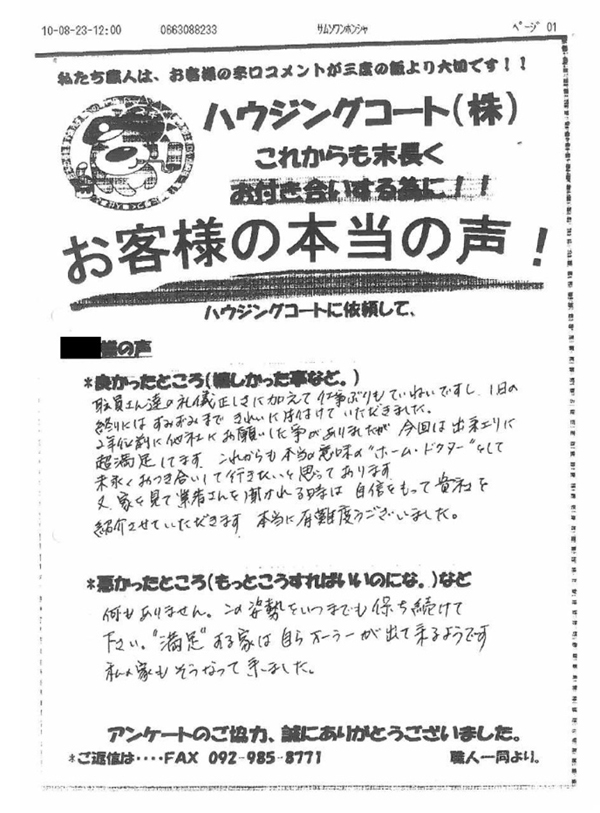 10-08-23-12:00 0663088233 サムソワンホンシャ ページ 01
私たち職人は、お客様の辛口コメントが三度の飯より大切です！！
ハウジングコート(株)
これからも末長く
お付き合いする為に！！
お客様の本当の声！
ハウジングコートに依頼して、
様の声
*良かったところ(嬉しかった事など。)
職員さん達の礼儀正しさに加えて仕事ぶりもていねいですし、1日の
終りにはすみずみまできれいに片付けていただきました。
2年位前に他社にお願いした事がありましたが今回は出来エリに
超満足してます。これからも本当の意味の"ホーム・ドクター"として
末永くおつき合いして行きたいと思っております
又、家を見て業者さんを聞かれる時は自信をもって貴社を
紹介させていただきます 本当に有難度うございました。
*悪かったところ(もっとこうすればいいのにな。)など
何もありません。この姿勢をいつまでも保ち続けて
下さい。"満足"する家は自らオーラーが出て来るようです
私の家もそうなって来ました。
アンケートのご協力、誠にありがとうございました。
*ご返信は････FAX 092-985-8771 職人一同より。